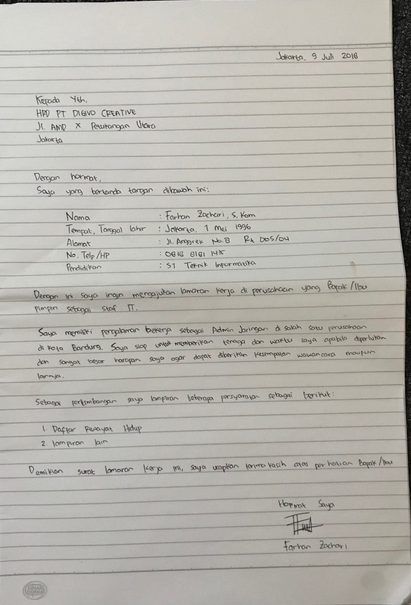 Jakarta, 9 Juli 2018
Kepada Yth.
HRD PT DIGIVO CREATIVE
Jl. AMD X Pesatangan Utara
Jakarta
Dengan hormat,
Saya yang bertanda tangan dibawah ini:
Nama : Farhan Zachari, S. Kom
Tempat, Tanggal lahir : Jakarta, 1 Mei 1996
Alamat : Jl. Anggrek No. 8 Rt 005/04
No. Telp/HP : 0818 8181
Pendidikan : S1 Teknik Informatika
Dengan ini saya ingin mengajukan lamaran kerja di perusahaan yang Bapak/Ibu
pimpin sebagai staf IT.
Saya memiliki pengalaman bekerja sebagai Admin Jaringan di salah satu perusahaan
di kota Bandung. Saya siap untuk memberikan tenaga dan waktu saya apabila diperlukan
dan sangat besar harapan saya agar dapat diberikan kesempatan wawancara maupun
lainnya.
Sebagai pertimbangan saya lampirkan beberapa persyaratan sebagai berikut:
1. Daftar Riwayat Hidup
2. Lampiran lain
Demikian surat lamaran kerja ini, saya ucapkan terima kasih atas perhatian Bapak/Ibu
Hormat Saya
Farhan Zachari